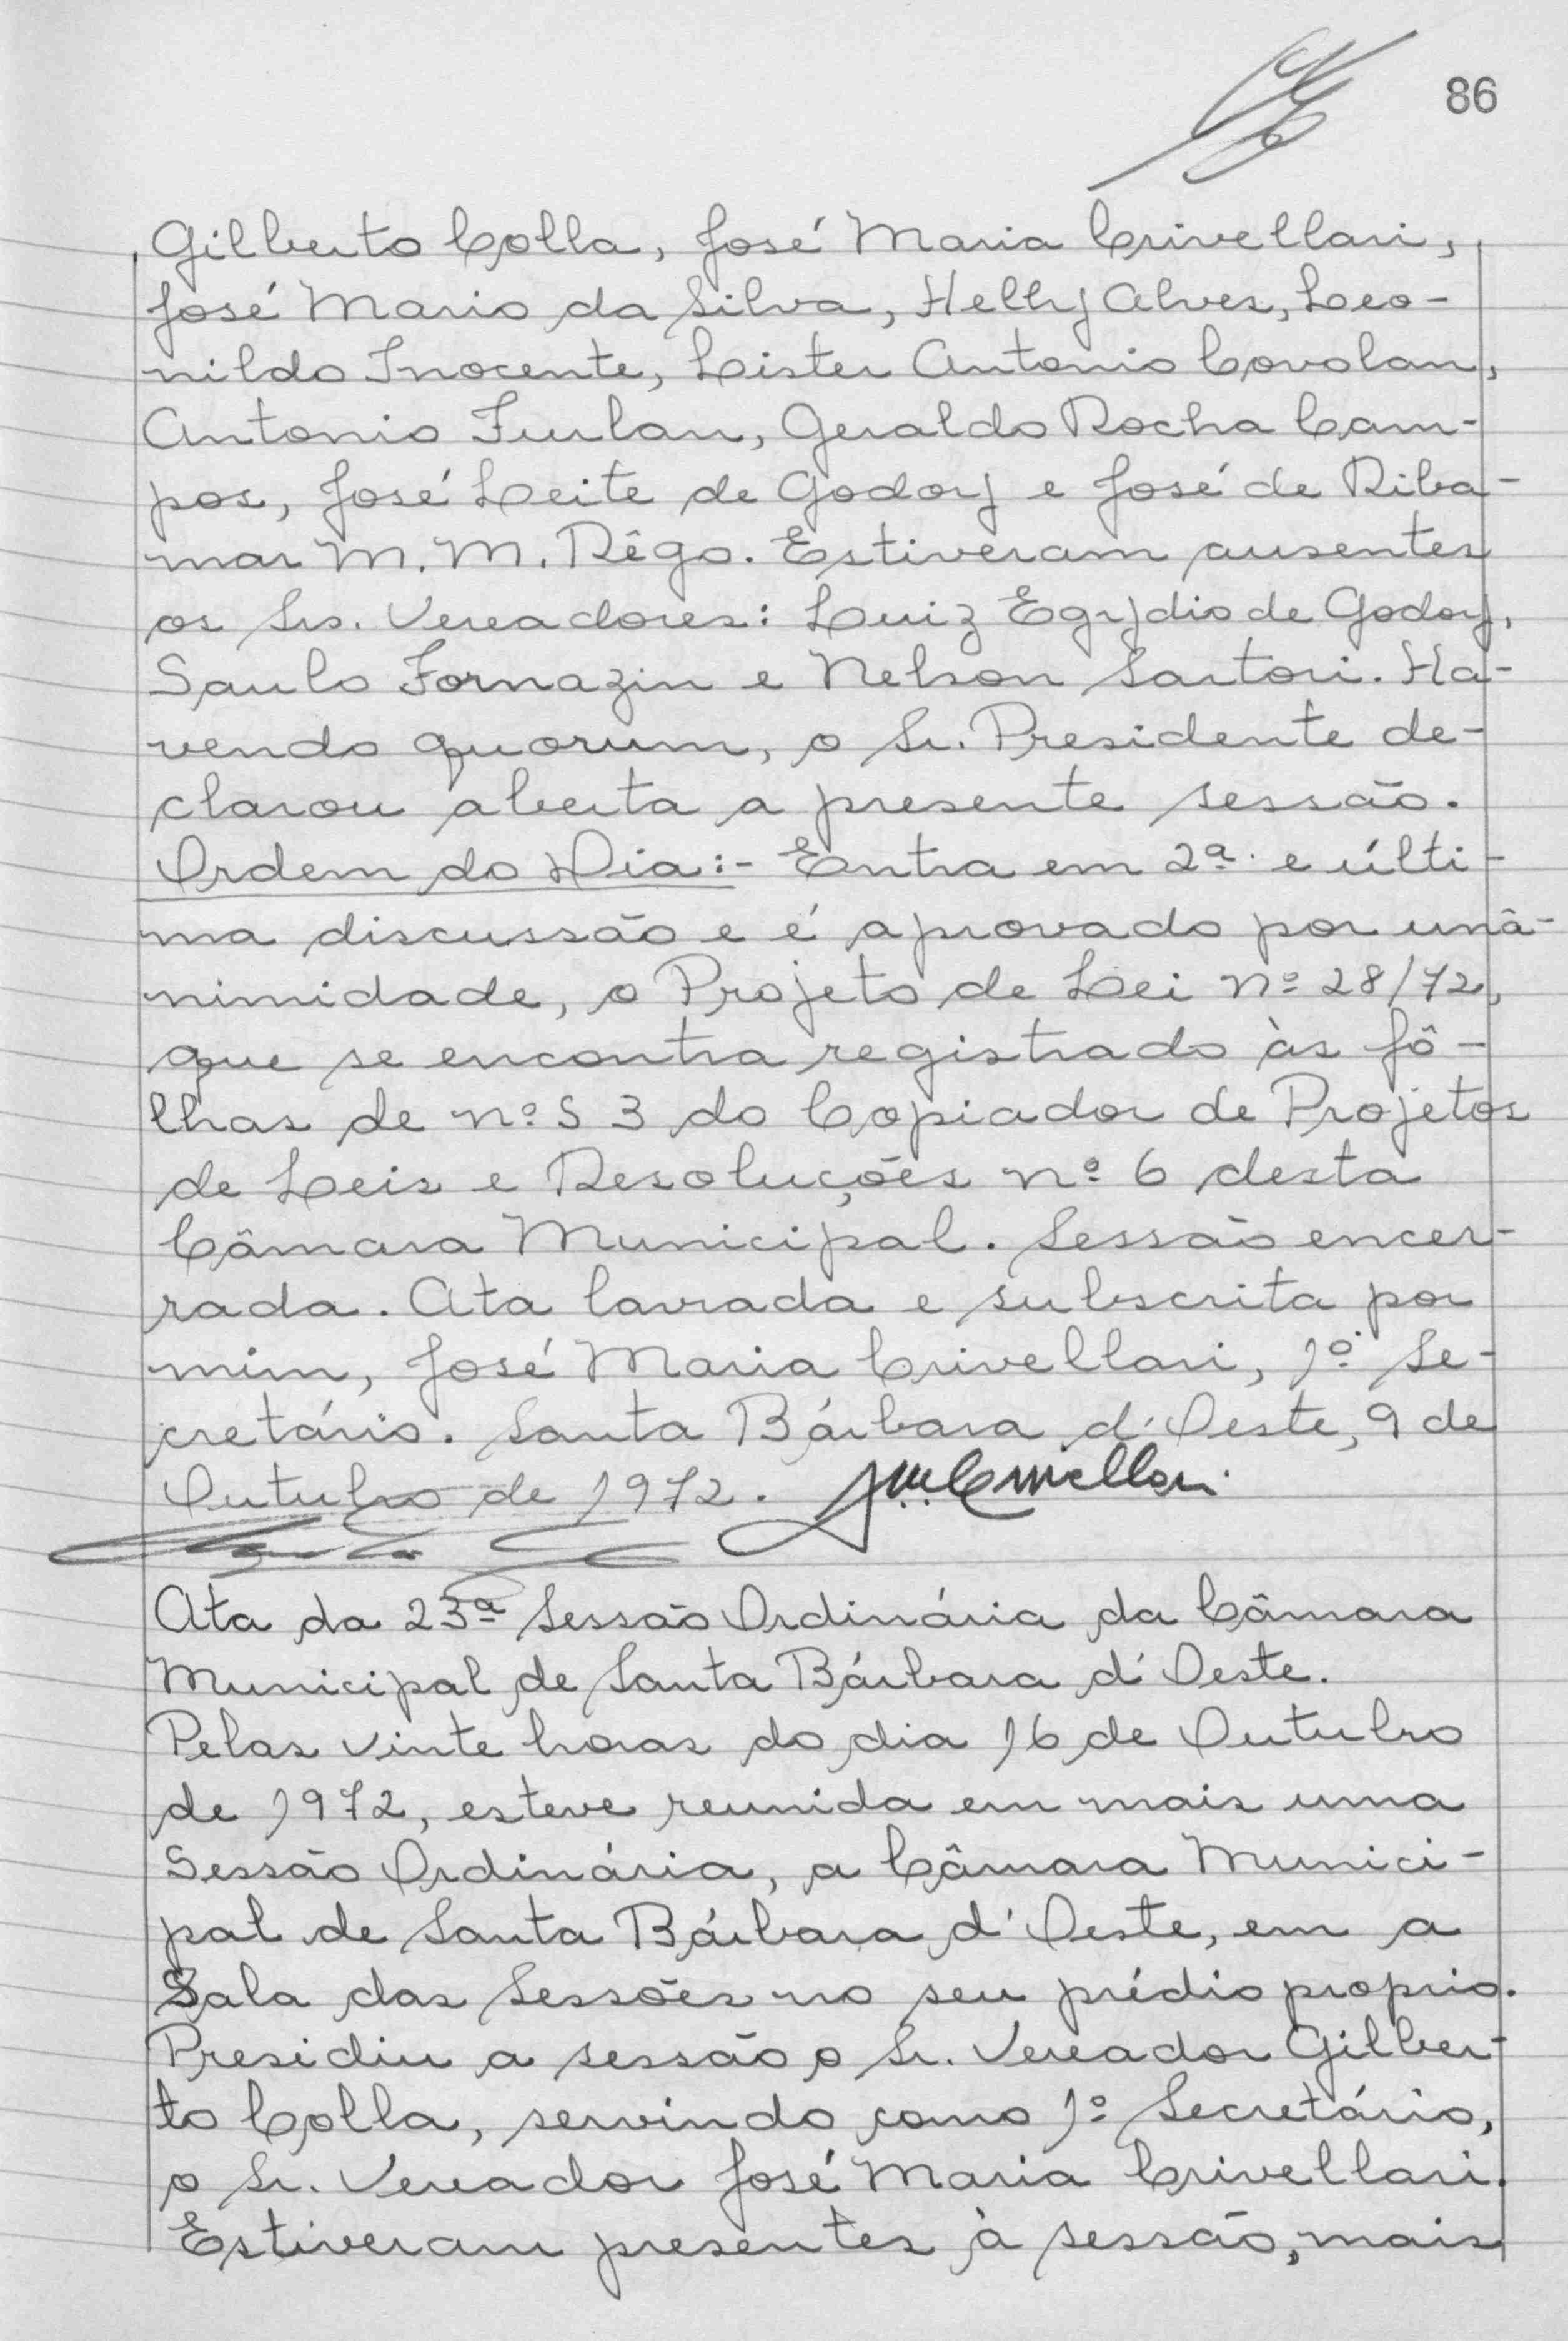 86
Gilberto Colla, José Maria Crivellari,
José Mario da Silva, Helly Alves, Leo-
nildo Inocente, Lister Antonio Covolan,
Antonio Furlan, Geraldo Rocha Cam-
pos, José Leite de Godoy e José de Riba-
mar M. M. Rêgo. Estiveram ausentes
os Srs. Vereadores: Luiz Egydio de Godoy,
Saulo Fornazin e Nelson Sartori. Ha-
vendo quorum, o Sr. Presidente de-
clarou aberta a presente sessão.
Ordem do Dia:- Entra em 2ª e últi-
ma discussão e é aprovado por unâ-
nimidade, o Projeto de Lei nº 28/72,
que se encontra registrado às fô-
lhas de nº 53 do Copiador de Projetos
de Leis e Resoluções nº 6 desta
Câmara Municipal. Sessão encer-
rada. Ata lavrada e subscrita por
mim, José Maria Crivellari, 1º Se-
cretário. Santa Bárbara d'Oeste, 9 de
Outubro de 1972. JMCrivellari
Ata da 23ª Sessão Ordinária da Câmara
Municipal de Santa Bárbara d'Oeste.
Pelas vinte horas do dia 16 de Outubro
de 1972, esteve reunida em mais uma
Sessão Ordinária, a Câmara Munici-
pal de Santa Bárbara d'Oeste, em a
Sala das Sessões no seu prédio proprio.
Presidiu a sessão o Sr. Vereador Gilber-
to Colla, servindo como 1º Secretário,
o Sr. Vereador José Maria Crivellari.
Estiveram presentes à sessão, mais